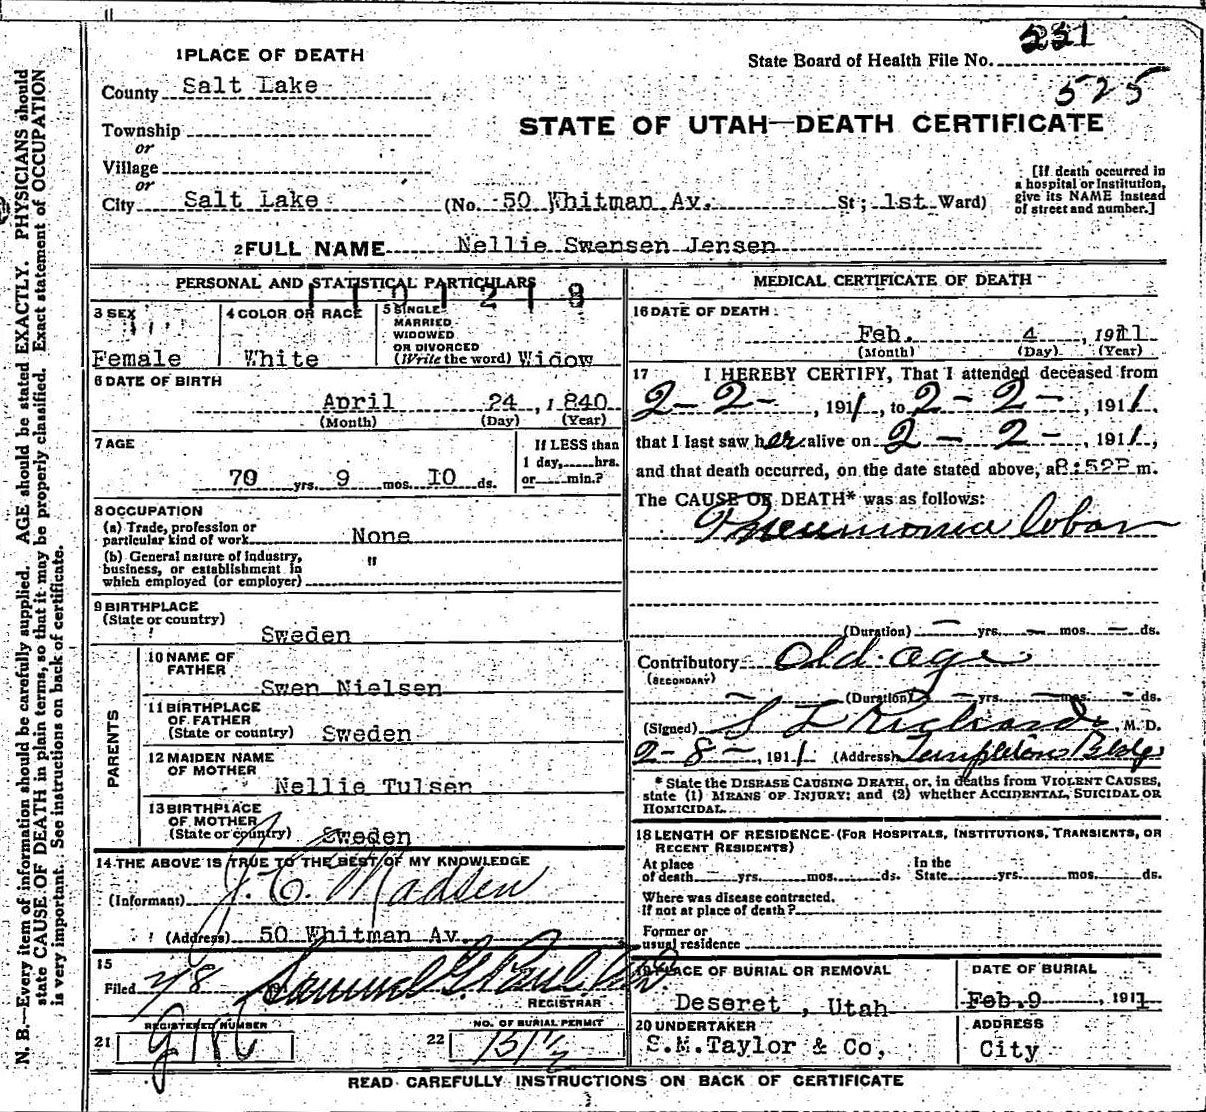 331
State Board of Health File No.
525
1 PLACE OF DEATH
County Salt Lake
STATE OF UTAH—DEATH CERTIFICATE
Township
or
Village
or
City Salt Lake (No. 50 Whitman Av. St; 1st Ward)
[If death occurred in
a hospital or Institution,
give its NAME instead
of street and number.]
2 FULL NAME Nellie Swensen Jensen
PERSONAL AND STATISTICAL PARTICULARS
3 SEX
Female
4 COLOR OR RACE
White
5 SINGLE
MARRIED
WIDOWED
OR DIVORCED
(Write the word) Widow
6 DATE OF BIRTH
April 24, 1840
(Month) (Day) (Year)
7 AGE
70 yrs. 9 mos. 10 ds.
If LESS than
1 day, hrs.
or min.?
8 OCCUPATION
(a) Trade, profession or
particular kind of work None
(b) General nature of industry,
business, or establishment in
which employed (or employer) "
9 BIRTHPLACE
(State or country)
Sweden
PARENTS
10 NAME OF
FATHER
Swen Nielsen
11 BIRTHPLACE
OF FATHER
(State or country) Sweden
12 MAIDEN NAME
OF MOTHER
Nellie Tulsen
13 BIRTHPLACE
OF MOTHER
(State or country) Sweden
14 THE ABOVE IS TRUE TO THE BEST OF MY KNOWLEDGE
(Informant) J. C. Madsen
(Address) 50 Whitman Av.
15
Filed 2/8 Samuel G. Paul
REGISTRAR
21 REGISTERED NUMBER
22 NO. OF BURIAL PERMIT
MEDICAL CERTIFICATE OF DEATH
16 DATE OF DEATH
Feb. 4, 1911
(Month) (Day) (Year)
17 I HEREBY CERTIFY, That I attended deceased from
2-2-, 1911, to 2-2-, 1911.
that I last saw her alive on 2-2-, 1911,
and that death occurred, on the date stated above, at 8:52P m.
The CAUSE OF DEATH* was as follows:
Pneumonia lobar
(Duration) — yrs. — mos. — ds.
Contributory Old age
(SECONDARY)
(Duration) — yrs. — mos. — ds.
(Signed) S L Richards, M. D.
2-8-, 1911 (Address) Templeton Bldg
* State the DISEASE CAUSING DEATH, or, in deaths from VIOLENT CAUSES,
state (1) MEANS OF INJURY; and (2) whether ACCIDENTAL, SUICIDAL OR
HOMICIDAL.
18 LENGTH OF RESIDENCE (FOR HOSPITALS, INSTITUTIONS, TRANSIENTS, OR
RECENT RESIDENTS)
At place
of death yrs. mos. ds.
In the
State yrs. mos. ds.
Where was disease contracted.
If not at place of death?
Former or
usual residence
19 PLACE OF BURIAL OR REMOVAL
Deseret, Utah
DATE OF BURIAL
Feb. 9, 1911
20 UNDERTAKER
S.M.Taylor & Co,
ADDRESS
City
READ CAREFULLY INSTRUCTIONS ON BACK OF CERTIFICATE
N. B.—Every item of information should be carefully supplied. AGE should be stated EXACTLY. PHYSICIANS should
state CAUSE OF DEATH in plain terms, so that it may be properly classified. Exact statement of OCCUPATION
is very important. See instructions on back of certificate.